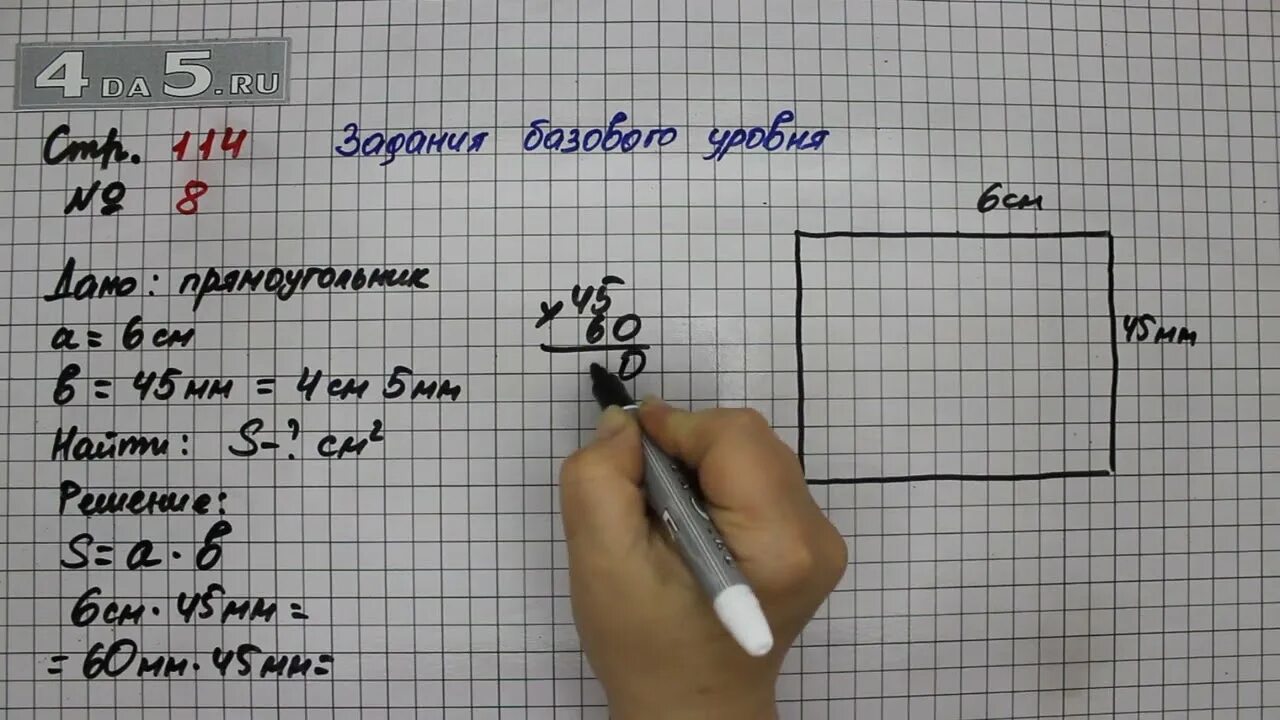 4DA5.RU
Стр. 114 Задания базового уровня
№ 8
6см
Дано: прямоугольник
a = 6 см
в = 45 мм = 4 см 5 мм
Найти: S-? см²
Решение:
S = a · в
6 см · 45 мм =
= 60 мм · 45 мм =
× 45
60
0
45 мм